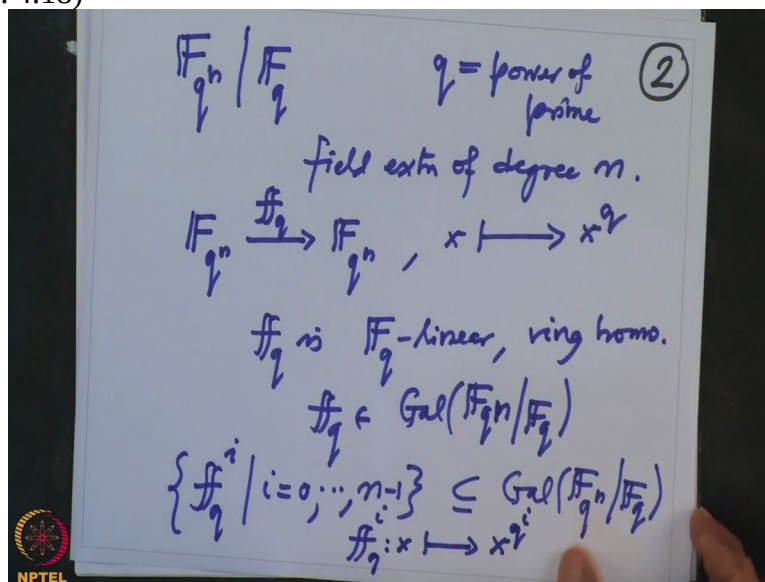 4.18)
F_{q^n} | F_q q = power of prime ②
field extn of degree n.
F_{q^n} —ff_q→ F_{q^n}, x ⟼ x^q
ff_q is F_q-linear, ring homo.
ff_q ∈ Gal(F_{q^n}/F_q)
{ff_q^i | i=0,...,n-1} ⊆ Gal(F_{q^n}/F_q)
ff_q^i : x ⟼ x^{q^i}
NPTEL